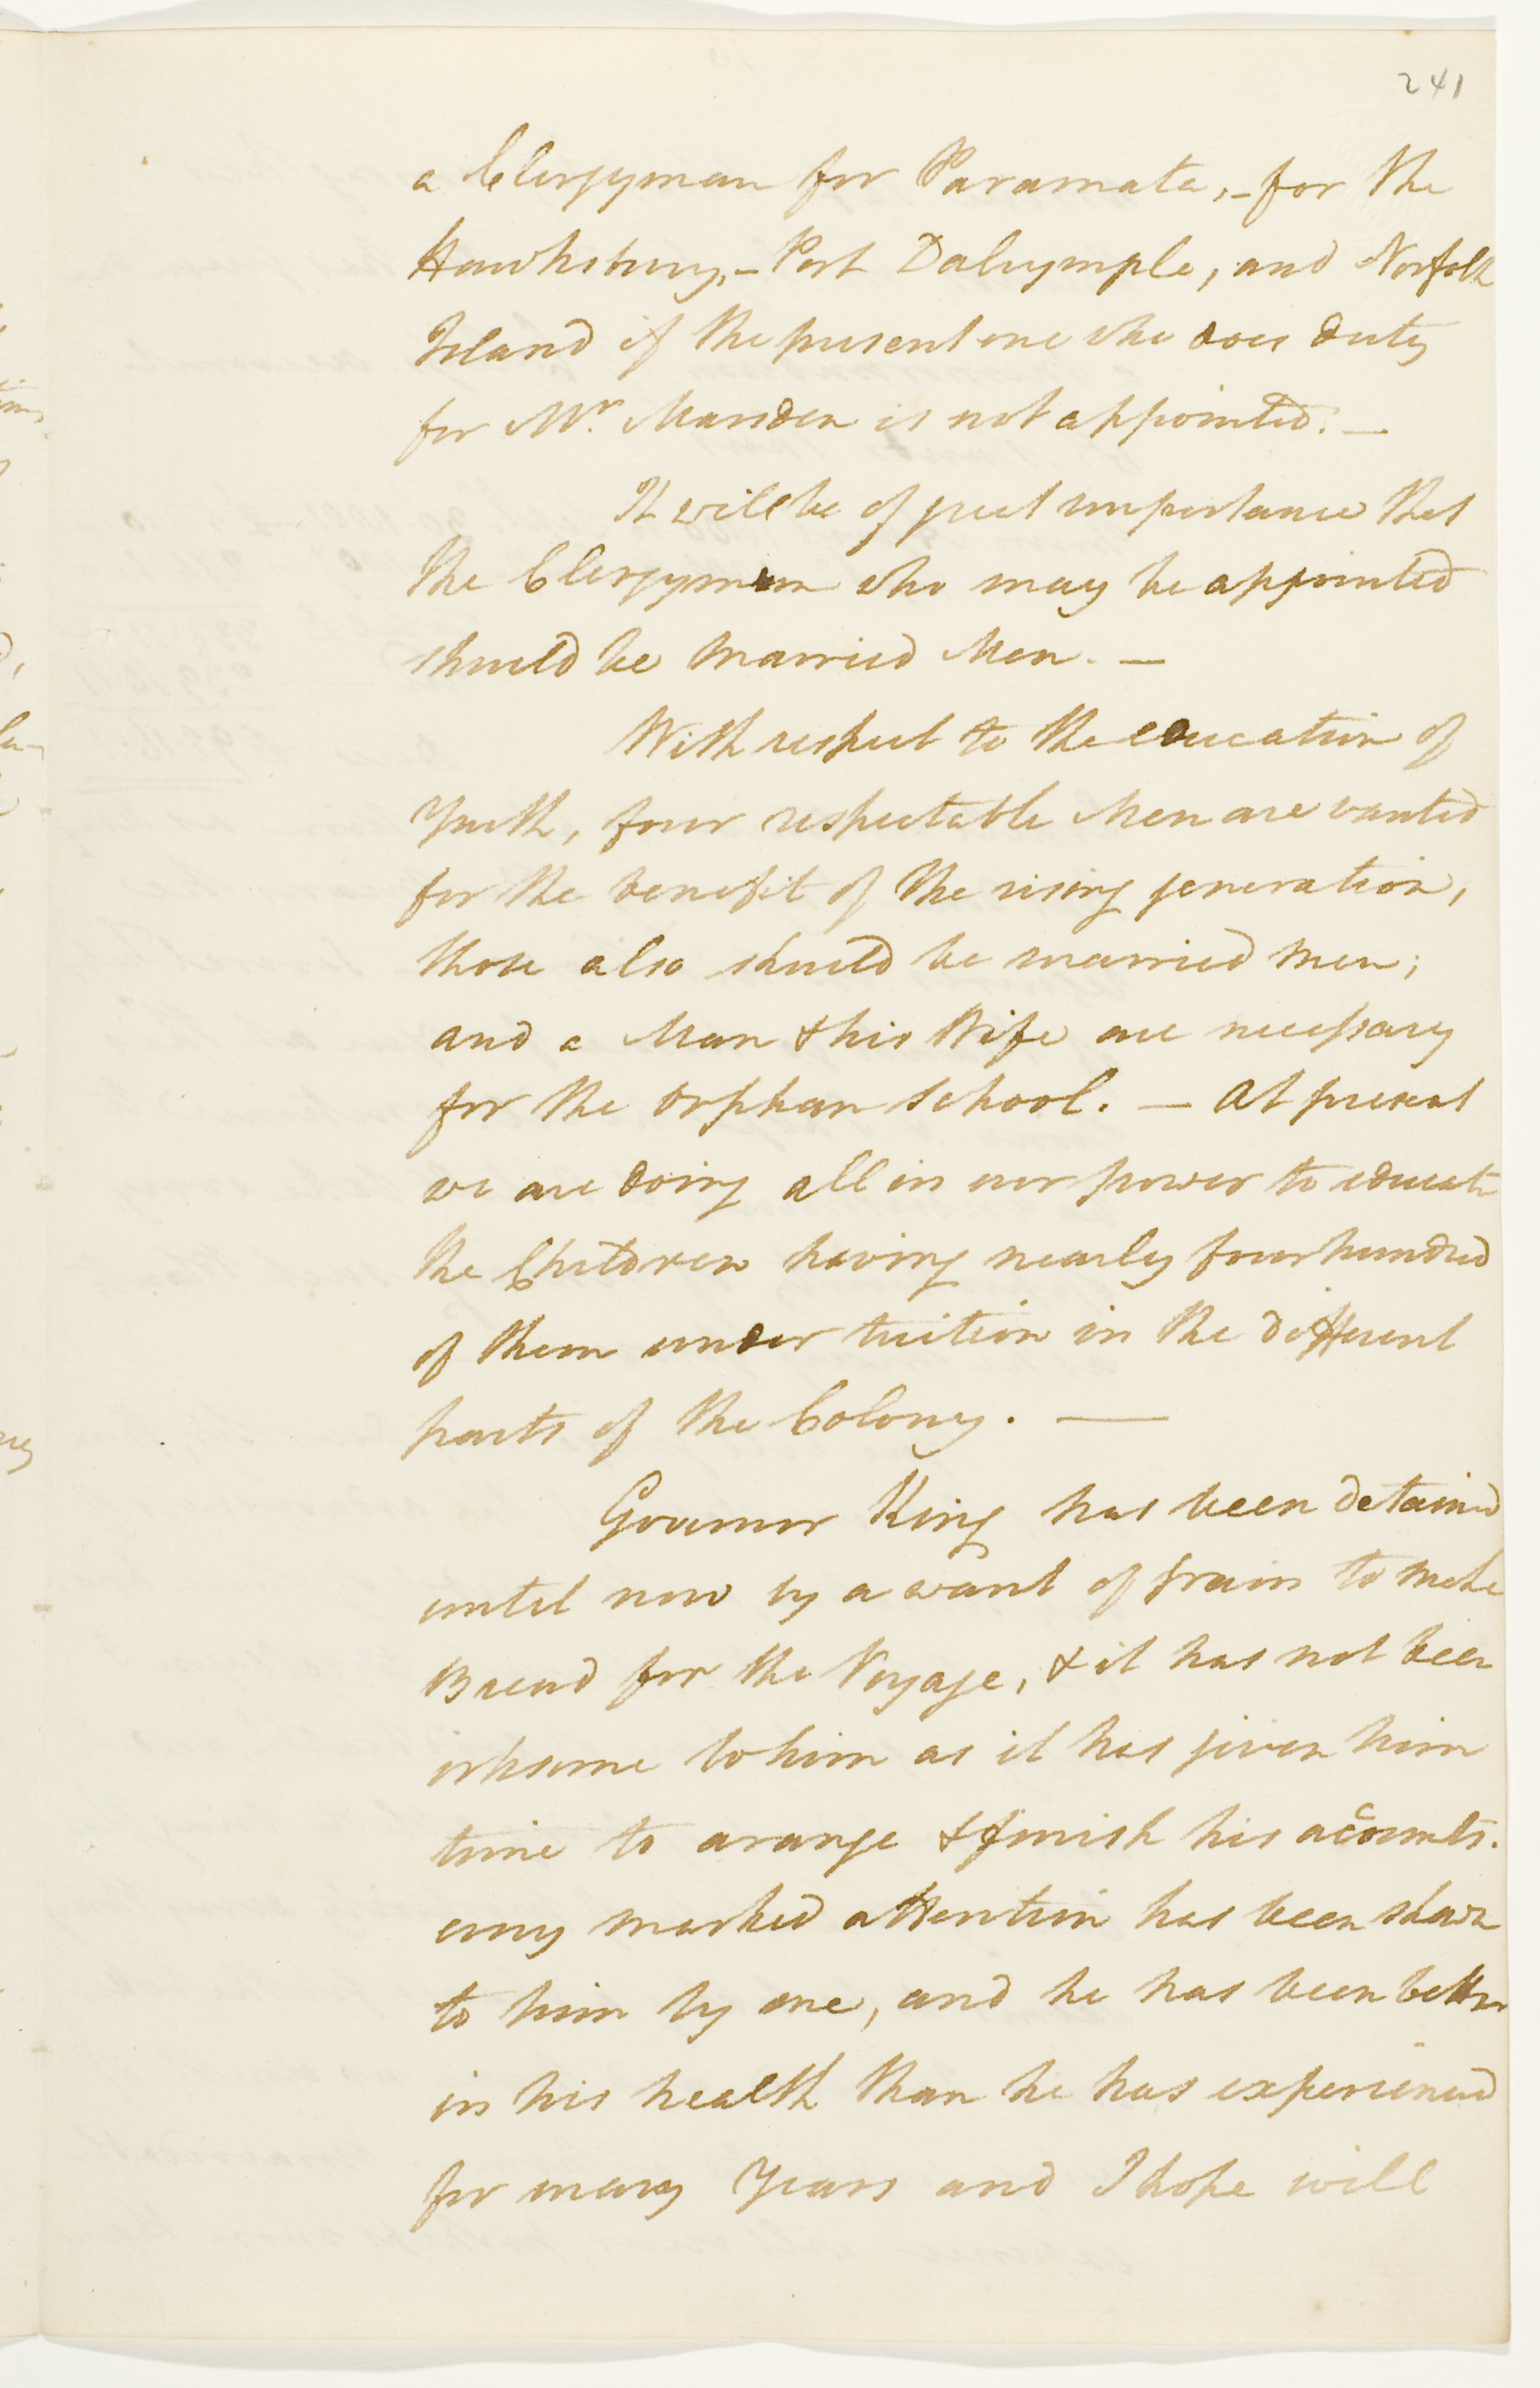 241
a Clergyman for Paramata, - for the
Hawksbury, - Port Dalrymple, and Norfolk
Island if the present one who does duty
for Mr. Marsden is not appointed. —
It will be of great importance that
the Clergymen who may be appointed
should be married Men. —
With respect to the education of
Youth, four respectable Men are wanted
for the benefit of the rising generation,
those also should be married men;
and a Man & his Wife are necessary
for the Orphan School. — At present
we are doing all in our power to educate
the Children having nearly four hundred
of them under tuition in the different
parts of the Colony. —
Governor King has been detained
until now by a want of grain to make
Bread for the Voyage, & it has not been
irksome to him as it has given him
time to arange & finish his accounts.
every marked attention has been shown
to him by me, and he has been better
in his health than he has experienced
for many Years and I hope will